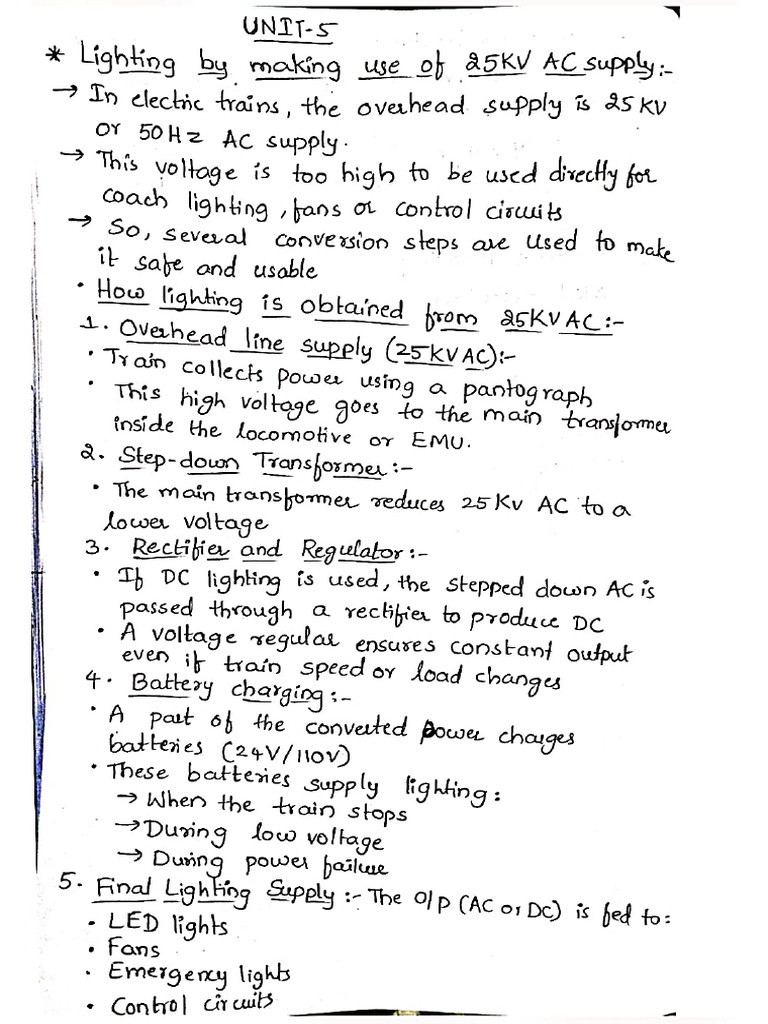 UNIT-5
* Lighting by making use of 25KV AC supply:-
→ In electric trains, the overhead supply is 25 KV
or 50Hz AC supply.
→ This voltage is too high to be used directly for
coach lighting, fans or control circuits
→ So, several conversion steps are used to make
it safe and usable
• How lighting is obtained from 25KV AC:-
1. Overhead line supply (25KV AC):-
• Train collects power using a pantograph
• This high voltage goes to the main transformer
inside the locomotive or EMU.
2. Step-down Transformer:-
• The main transformer reduces 25Kv AC to a
lower voltage
3. Rectifier and Regulator:-
• If DC lighting is used, the stepped down AC is
passed through a rectifier to produce DC
• A voltage regular ensures constant output
even if train speed or load changes
4. Battery charging:-
• A part of the converted power charges
batteries (24V/110V)
• These batteries supply lighting:
→ When the train stops
→ During low voltage
→ During power failure
5. Final Lighting Supply:- The O/P (AC or DC) is fed to:
• LED lights
• Fans
• Emergency lights
• Control circuits